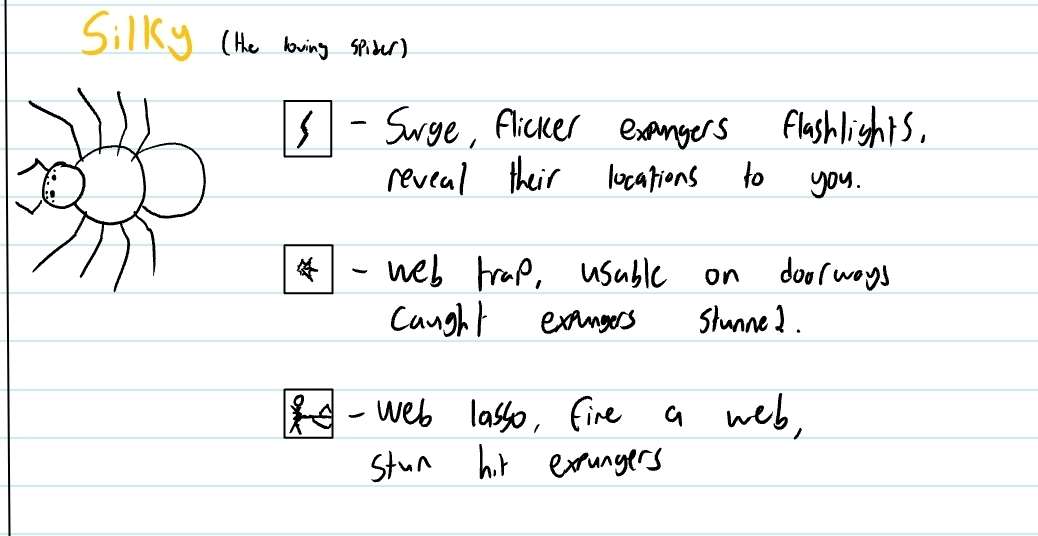 Silky (the loving spider)
- Surge, flicker expungers flashlights,
reveal their locations to you.
- web trap, usable on doorways
Caught expungers stunned.
- web lasso, fire a web,
stun hit expungers